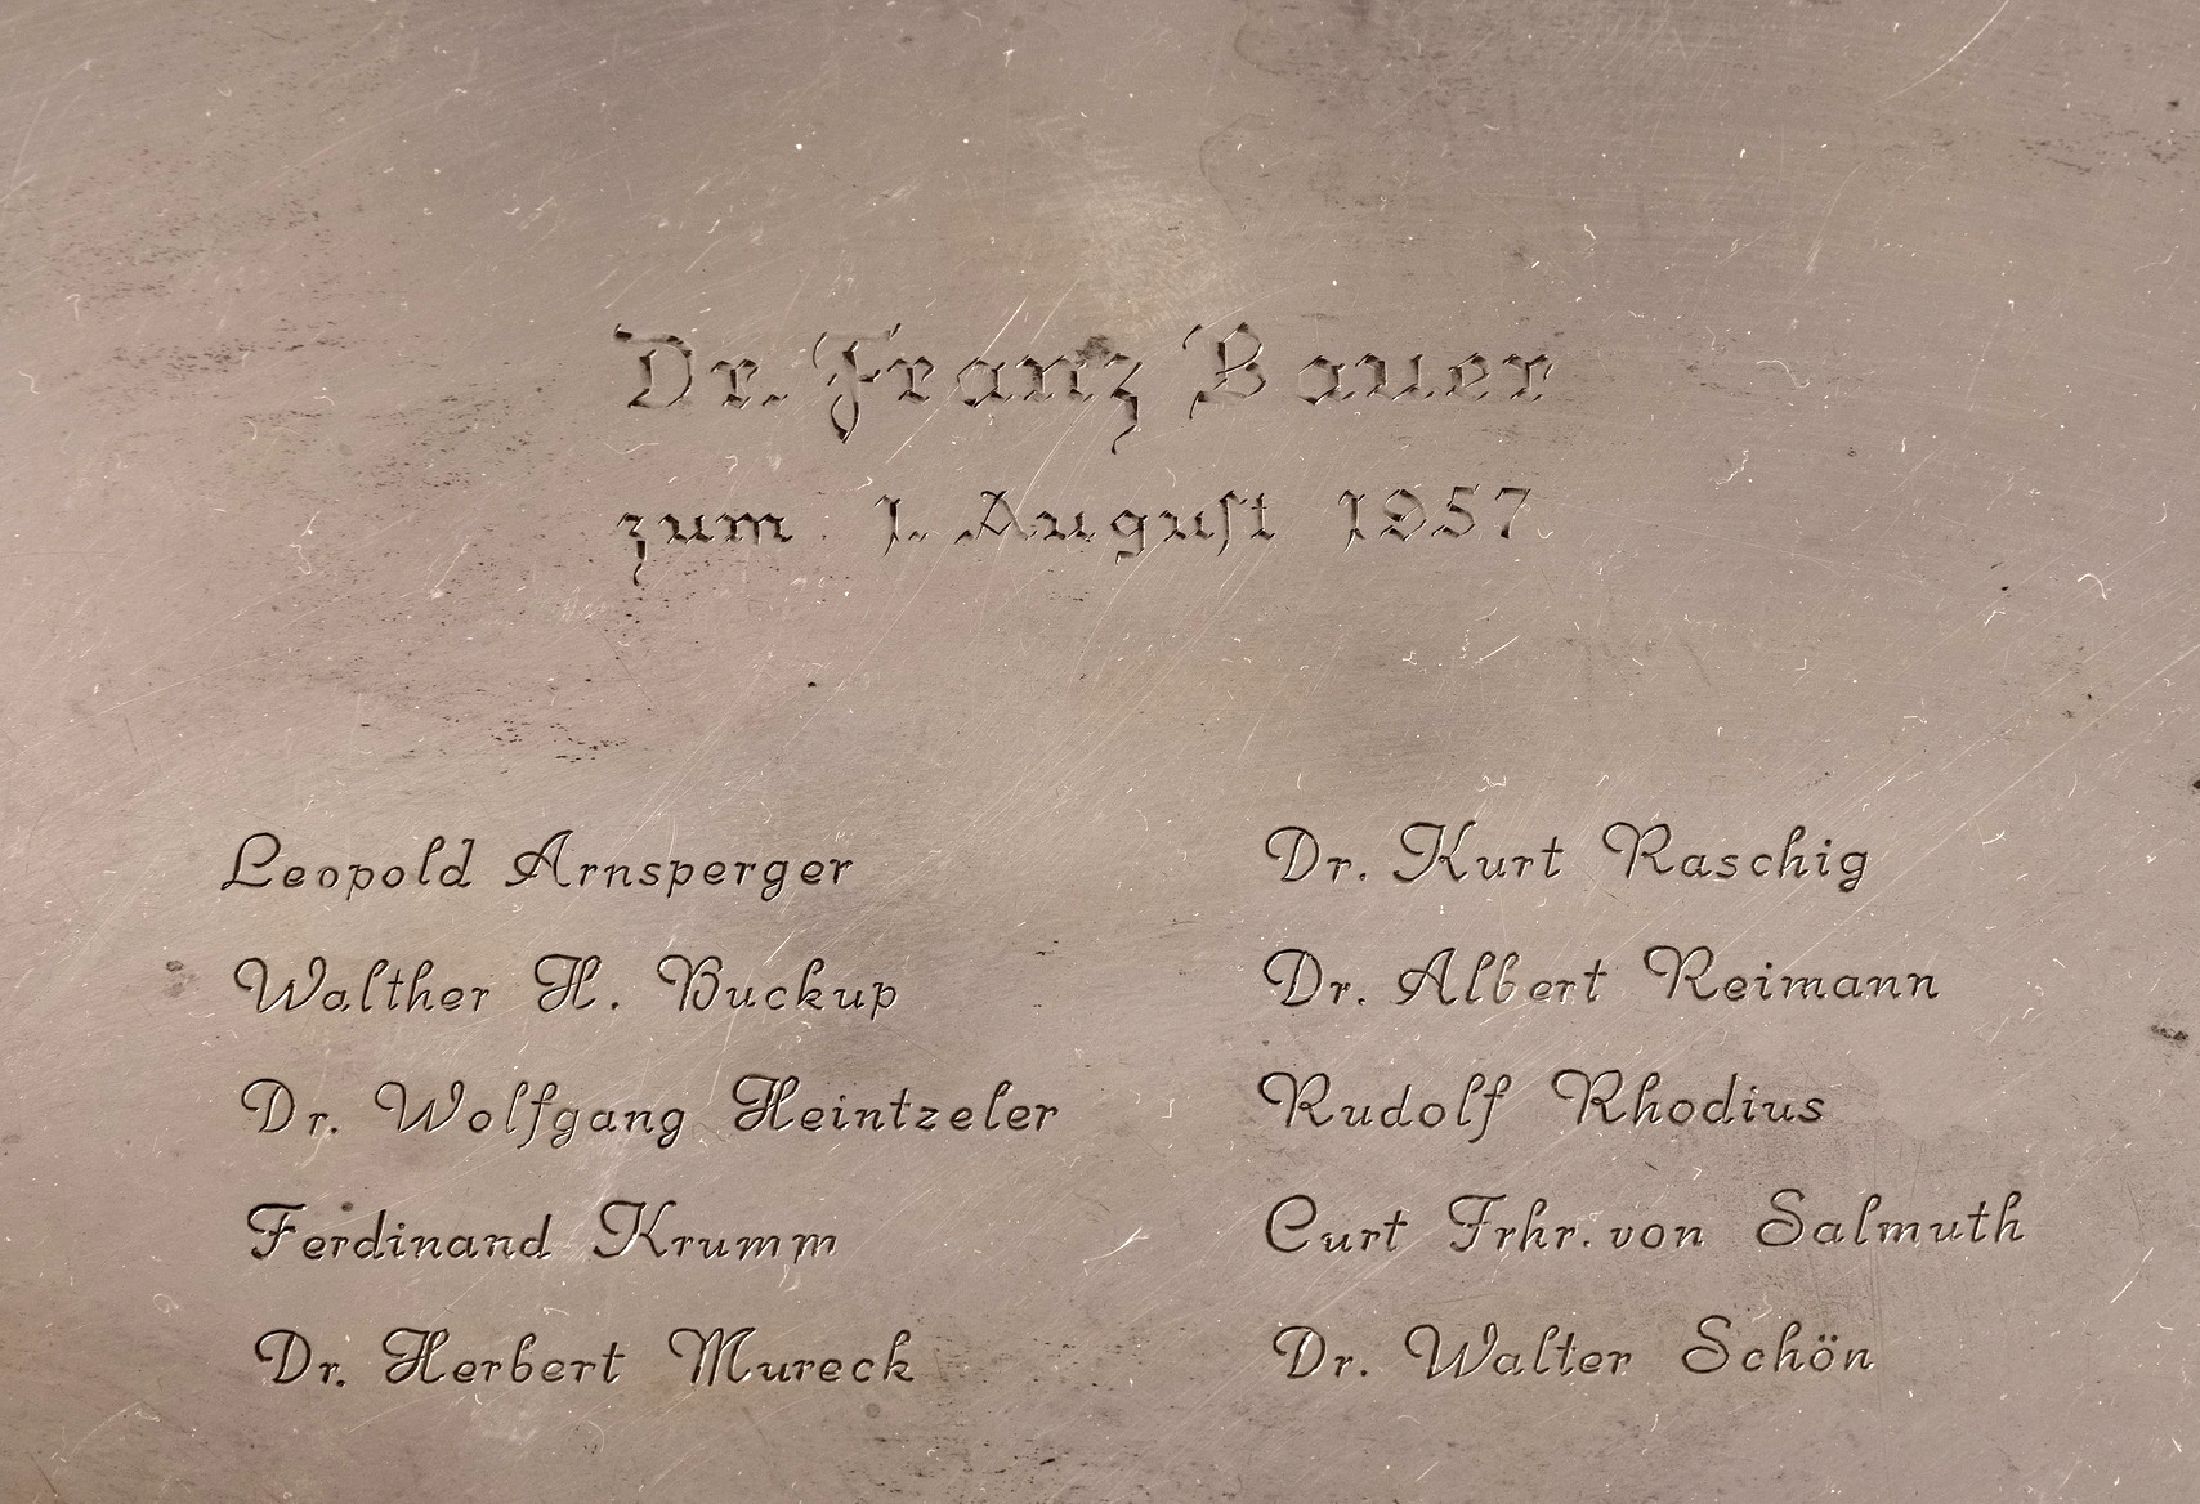 Dr. Franz Bauer
zum 1. August 1957
Leopold Arnsperger
Walther H. Buckup
Dr. Wolfgang Heintzeler
Ferdinand Krumm
Dr. Herbert Mureck
Dr. Kurt Raschig
Dr. Albert Reimann
Rudolf Rhodius
Curt Frhr. von Salmuth
Dr. Walter Schön